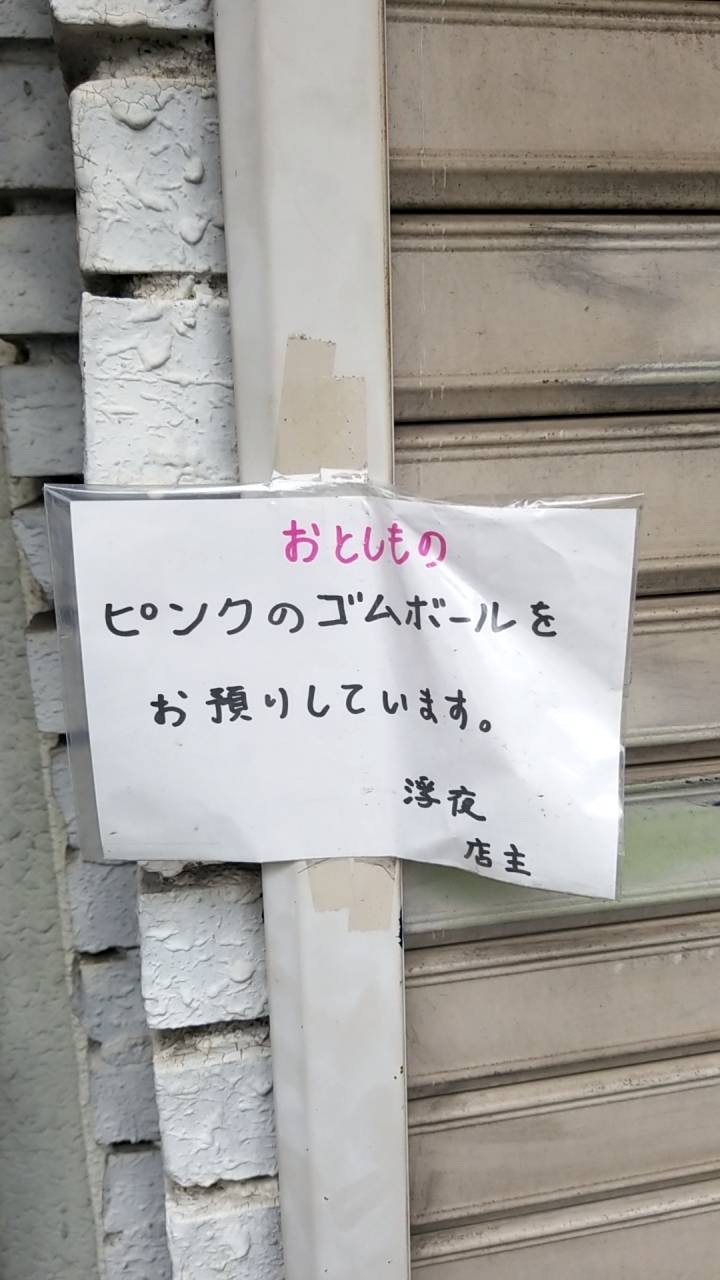 おとしもの
ピンクのゴムボールを
お預りしています。
浮夜
店主